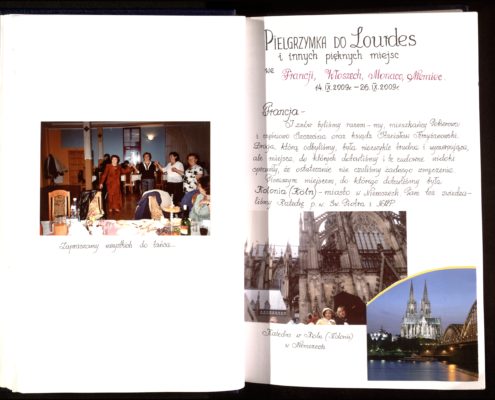 Zapraszamy wszystkich do tańca...
PIELGRZYMKA DO Lourdes
i innych pięknych miejsc
we Francji, Włoszech, Monaco, Niemiec.
14.IX.2009r - 26.IX.2009r
Francja -
I znów byliśmy razem - my, mieszkańcy
i Szczecina oraz ksiądz
Droga, którą odbyliśmy, była niezwykle trudna i wyczerpująca,
ale miejsca do których dotarliśmy i te cudowne widoki
sprawiły, że ostatecznie nie czuliśmy żadnego zmęczenia.
Pierwszym miejscem, do którego dotarliśmy była
Kolonia (Köln) - miasto w Niemczech. Tam też zwiedza-
liśmy Katedrę p.w. Św. Piotra i NMP.
Katedra w Köln (Kolonia)
w Niemczech